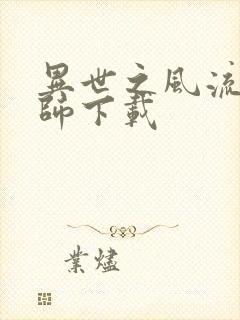 異世之風流
師下載
業燼